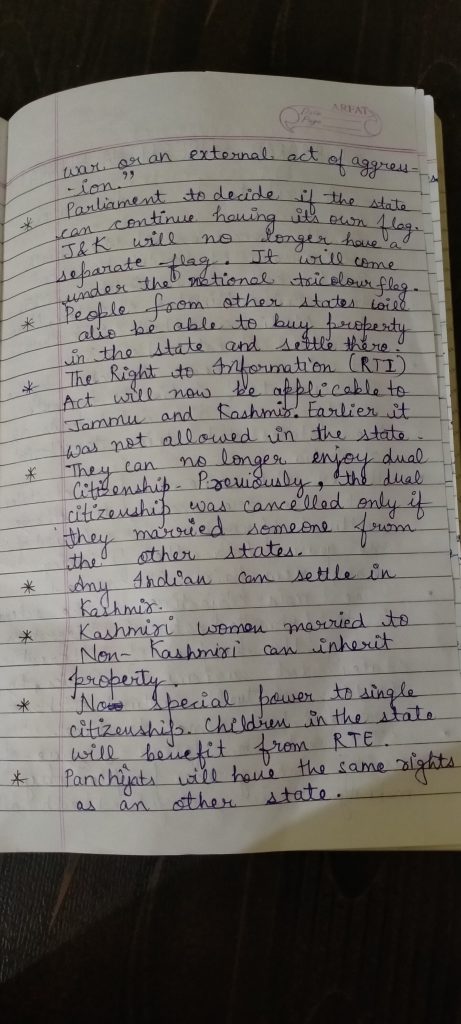 ARFAT
Date
Page
war or an external act of aggress-
-ion."
* Parliament to decide if the state
can continue having its own flag.
J&K will no longer have a
separate flag. It will come
under the national tricolour flag.
* People from other states will
also be able to buy property
in the state and settle there.
* The Right to Information (RTI)
Act will now be applicable to
Jammu and Kashmir. Earlier it
was not allowed in the state.
* They can no longer enjoy dual
Citizenship. Previously, the dual
citizenship was cancelled only if
they married someone from
the other states.
* Any Indian can settle in
Kashmir.
* Kashmiri women married to
Non-Kashmiri can inherit
property.
* No special power to single
citizenship. Children in the state
will benefit from RTE.
* Panchijats will have the same rights
as an other state.